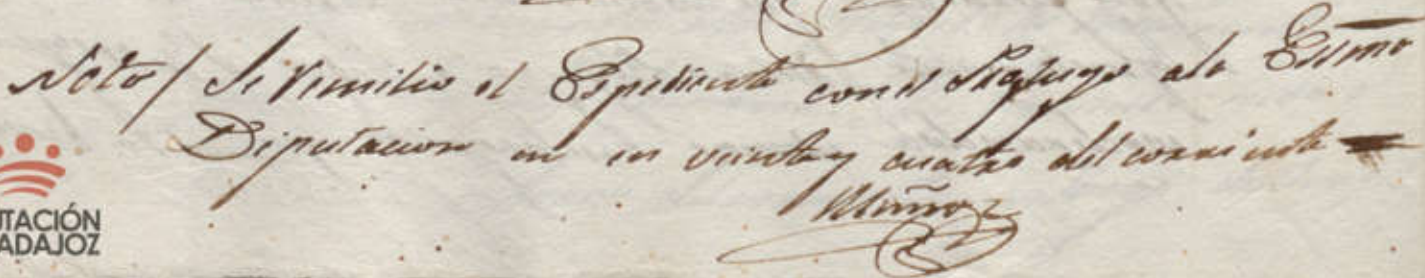 Nota / Se remitio el Espediente con el ala Esma
Diputacion en en veinte y cuatro del corriente =
Muñoz
UTACIÓN
ADAJOZ